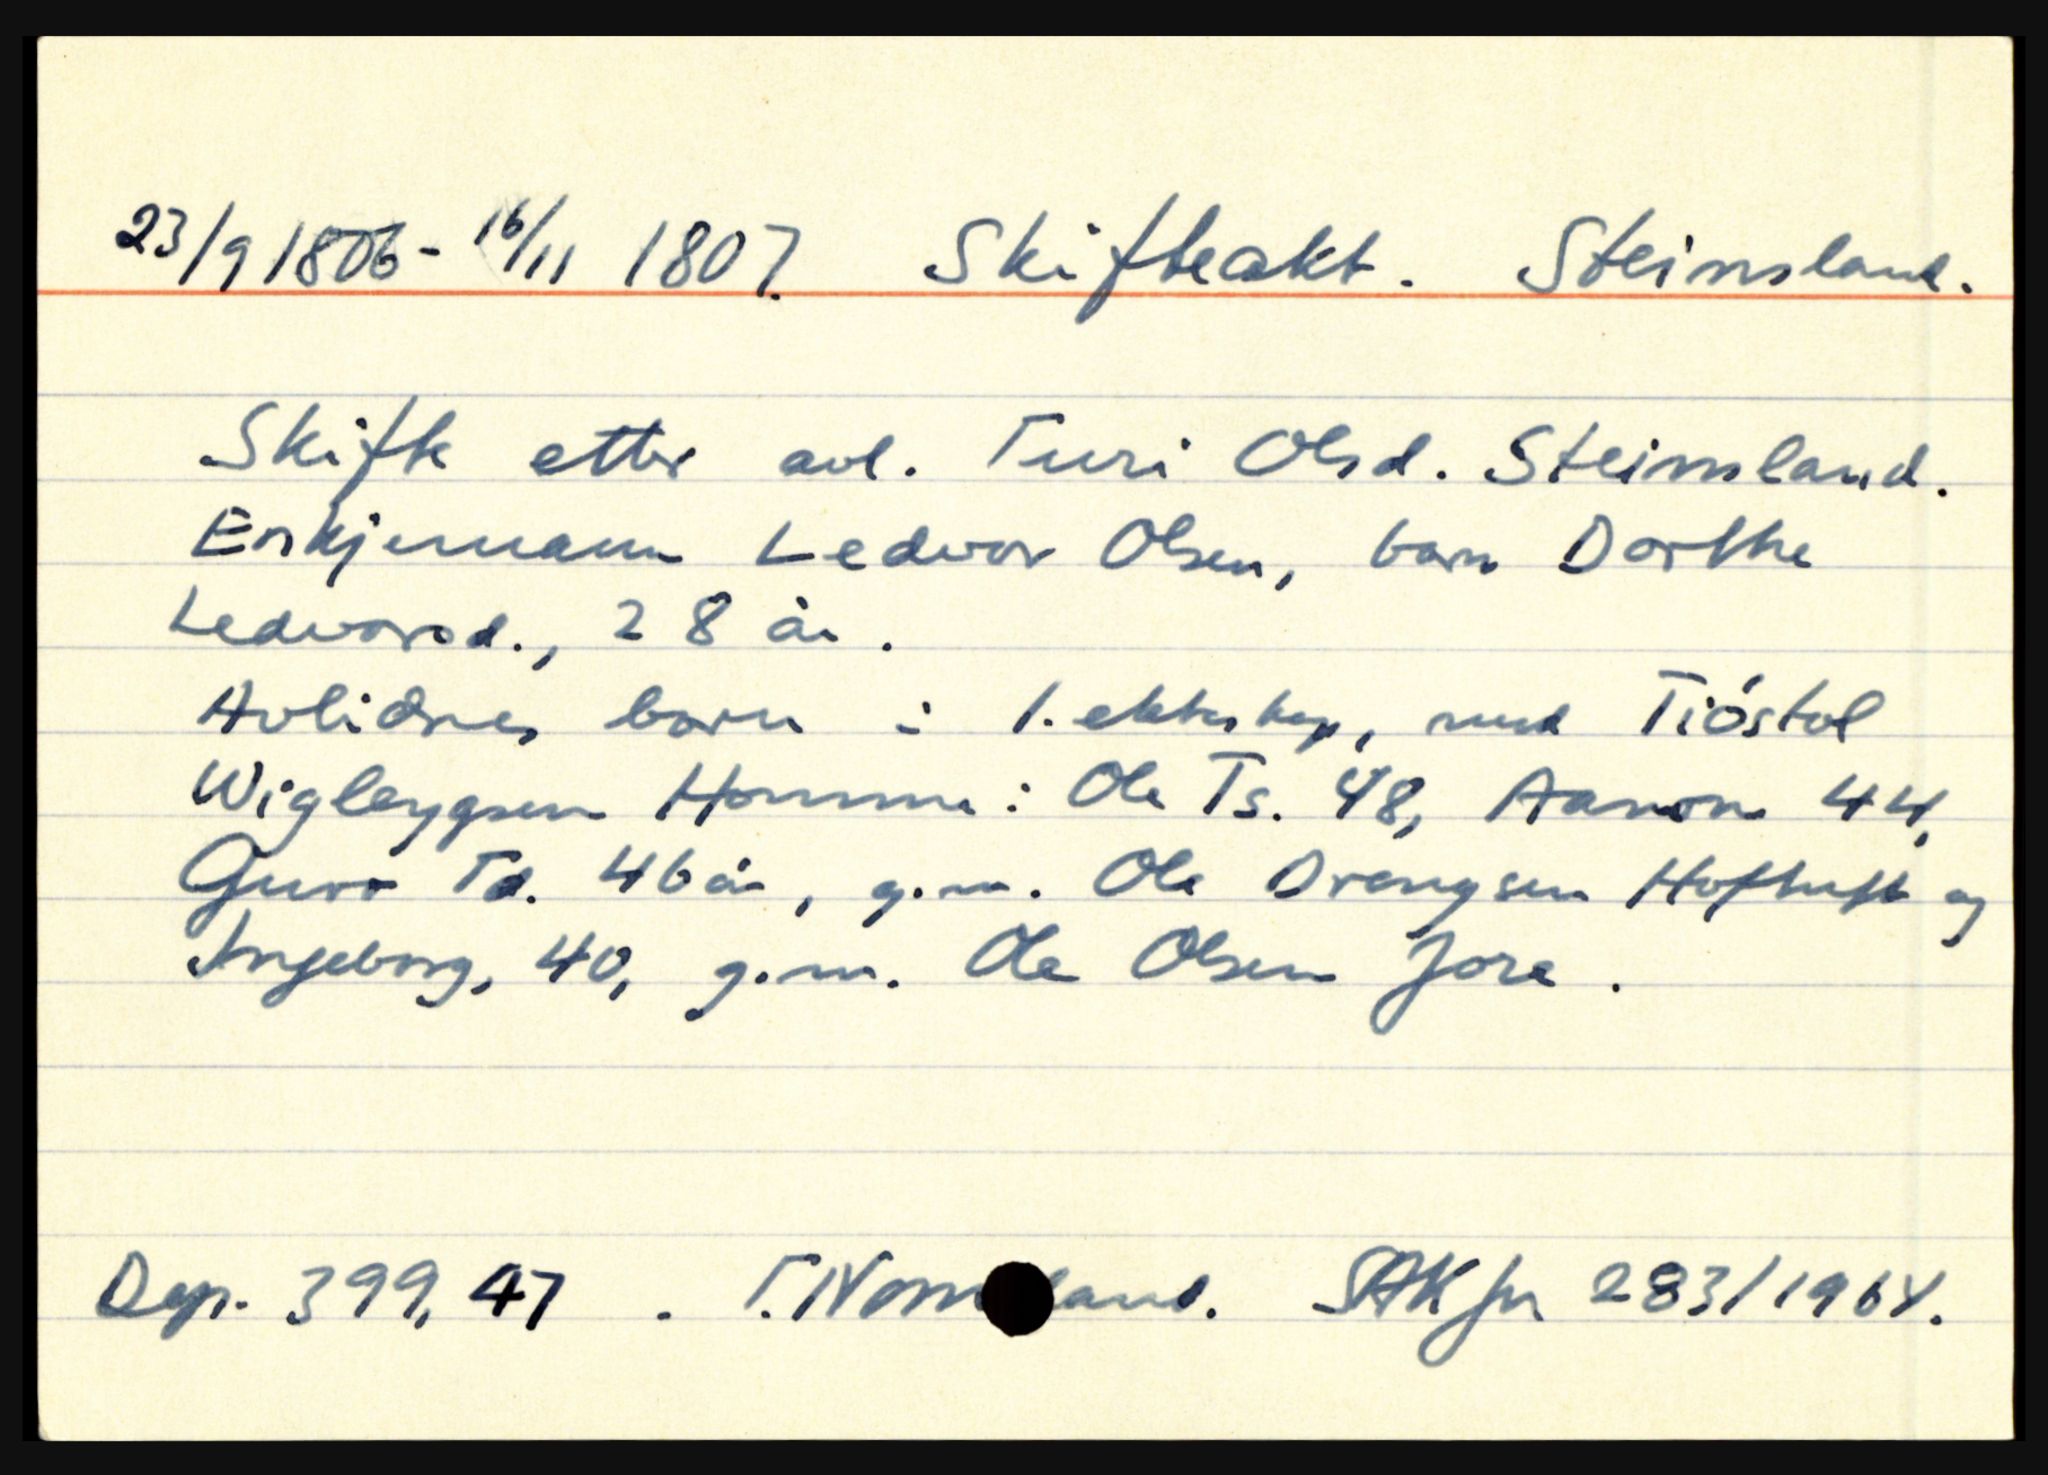 23/9 1806 - 16/11 1807. Skifteakt. Steinsland.
Skifte etter avl. Turi Olsd. Steinsland.
Enkjemann Ledvor Olsen, barn Dorthe
Ledvorsd., 28 år.
Avlidnes born i 1. ekteskap, med Tióstol
Wigleygsen Homme: Ole Ts. 48, Aanon 44,
Guro Td. 46 år, g.m. Ole Drengsen Hoftuft og
Ingeborg, 40, g.m. Ole Olsen Jore.
Dep. 399, 47. T. Nomeland. SAK jr 283/1964.